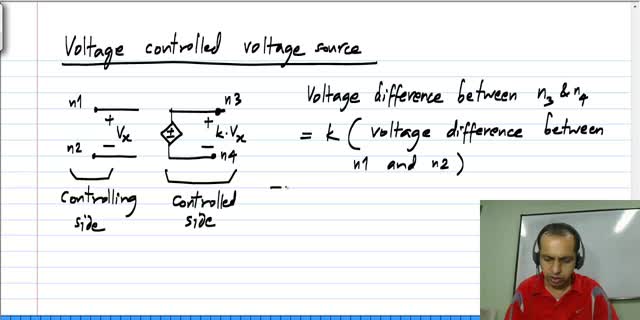 Voltage controlled voltage source
n1
+
Vx
−
n2
±
n3
+
k·Vx
−
n4
controlling side
controlled side
Voltage difference between n3 & n4
= k ( voltage difference between
n1 and n2 )